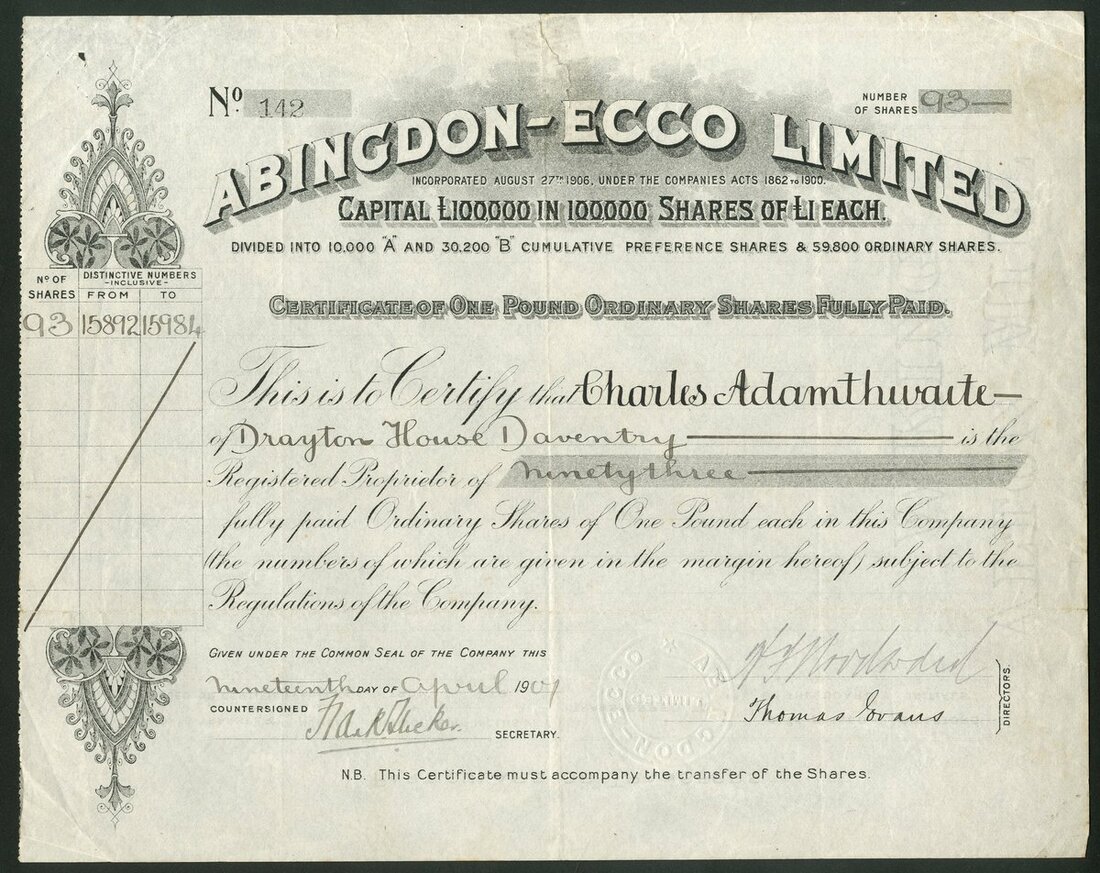 No 142
NUMBER OF SHARES 93—
ABINGDON-ECCO LIMITED
INCORPORATED AUGUST 27TH 1906, UNDER THE COMPANIES ACTS 1862 TO 1900.
CAPITAL £100,000 IN 100,000 SHARES OF £1 EACH.
DIVIDED INTO 10,000 "A" AND 30,200 "B" CUMULATIVE PREFERENCE SHARES & 59,800 ORDINARY SHARES.
No OF SHARES
DISTINCTIVE NUMBERS
-INCLUSIVE-
FROM TO
93 15892 15984
CERTIFICATE OF ONE POUND ORDINARY SHARES FULLY PAID.
This is to Certify that Charles Adamthwaite—
of Drayton House Daventry — is the
Registered Proprietor of ninety three —
fully paid Ordinary Shares of One Pound each in this Company
(the numbers of which are given in the margin hereof) subject to the
Regulations of the Company.
GIVEN UNDER THE COMMON SEAL OF THE COMPANY THIS
nineteenth DAY OF April 1907
COUNTERSIGNED
SECRETARY.
Thomas Evans
DIRECTORS.
ABINGDON-ECCO
LIMITED
N.B. This Certificate must accompany the transfer of the Shares.